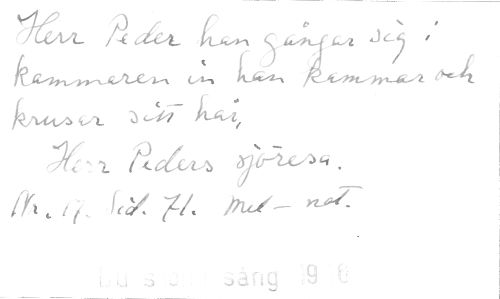 Herr Peder han gångar sig i
kammaren in han kammar och
krusar sitt hår,
Herr Peders sjöresa.
Nr. 17. Sid. 71. Mel – not.
sång